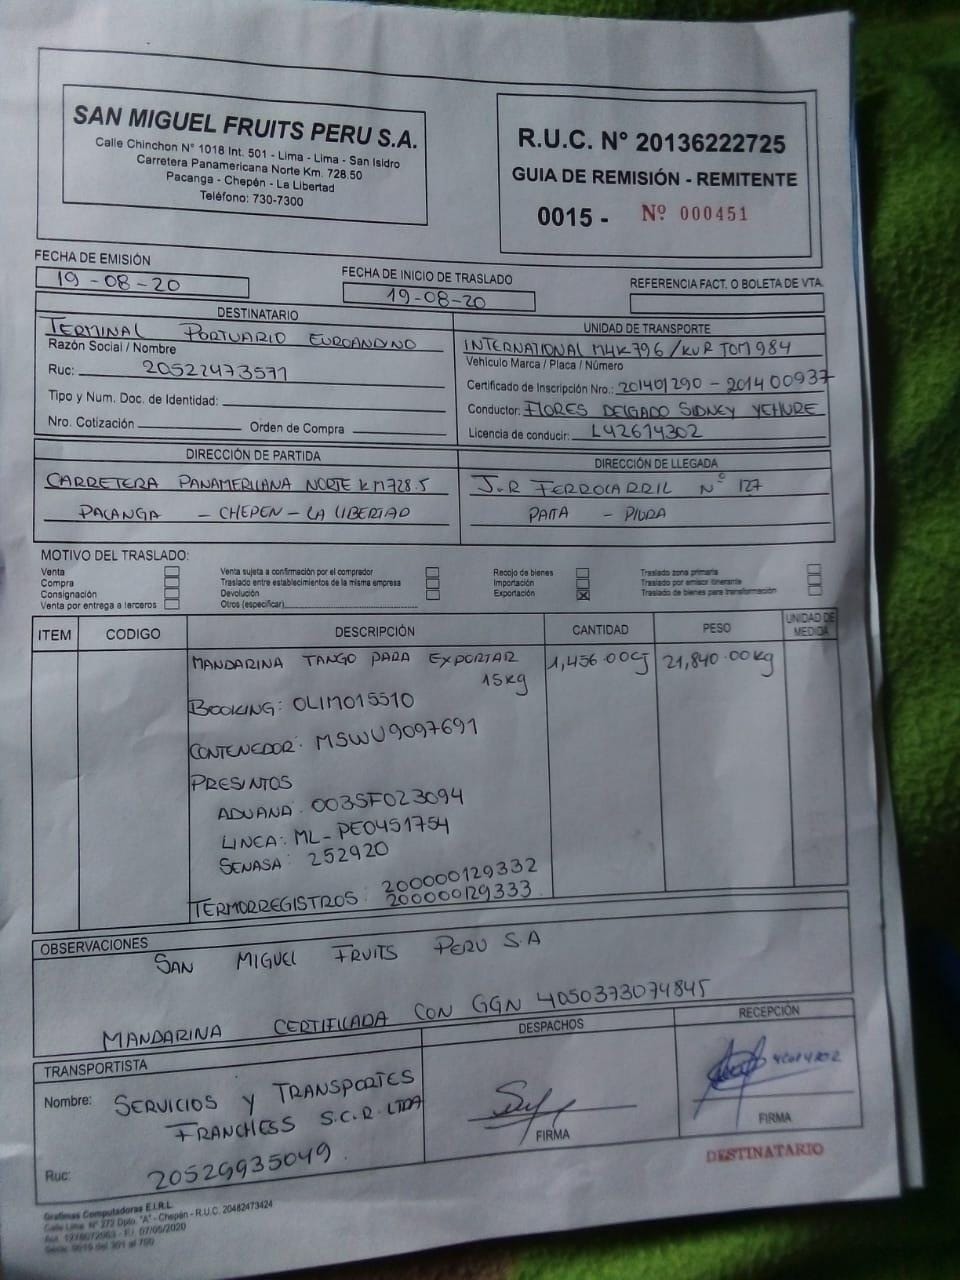 SAN MIGUEL FRUITS PERU S.A.
Calle Chinchon N° 1018 Int. 501 - Lima - Lima - San Isidro
Carretera Panamericana Norte Km. 728.50
Pacanga - Chepén - La Libertad
Teléfono: 730-7300
R.U.C. N° 20136222725
GUIA DE REMISIÓN - REMITENTE
0015 - Nº 000451
FECHA DE EMISIÓN
19-08-20
FECHA DE INICIO DE TRASLADO
19-08-20
REFERENCIA FACT. O BOLETA DE VTA.
DESTINATARIO
TERMINAL PORTUARIO EUROANDINO
Razón Social / Nombre
Ruc: 20522473571
Tipo y Num. Doc. de Identidad:
Nro. Cotización Orden de Compra
UNIDAD DE TRANSPORTE
INTERNATIONAL M4K796 / KUR TOM984
Vehículo Marca / Placa / Número
Certificado de Inscripción Nro.: 201401290 - 201400937
Conductor: FLORES DELGADO SIDNEY YEHURE
Licencia de conducir: L42614302
DIRECCIÓN DE PARTIDA
CARRETERA PANAMERICANA NORTE KM728.5
PACANGA - CHEPEN - LA LIBERTAD
DIRECCIÓN DE LLEGADA
J.R FERROCARRIL N° 127
PAITA - PIURA
MOTIVO DEL TRASLADO:
Venta
Compra
Consignación
Venta por entrega a terceros
Venta sujeta a confirmación por el comprador
Traslado entre establecimientos de la misma empresa
Devolución
Otros (especificar)
Recojo de bienes
Importación
Exportación X
Traslado zona primaria
Traslado por emisor itinerante
Traslado de bienes para transformación
ITEM CODIGO DESCRIPCIÓN CANTIDAD PESO UNIDAD DE MEDIDA
MANDARINA TANGO PARA EXPORTAR 1,456.00CJ 21,840.00Kg
15Kg
BOOKING: OLIM015510
CONTENEDOR: MSWU9097691
PRESINTOS
ADUANA: 003SF023094
LINEA: ML-PE0451754
SENASA: 252920
TERMORREGISTROS: 200000129332
200000129333
OBSERVACIONES
SAN MIGUEL FRUITS PERU S.A
MANDARINA CERTIFICADA CON GGN 4050373074845
TRANSPORTISTA
Nombre: SERVICIOS Y TRANSPORTES
FRANCHESS S.C.R. LTDA
Ruc: 20529935049
DESPACHOS
FIRMA
RECEPCIÓN
FIRMA
DESTINATARIO
Grafimas Computadoras E.I.R.L.
Calle Lima N° 272 Dpto. "A" - Chepén - R.U.C. 20482473424
07/05/2020